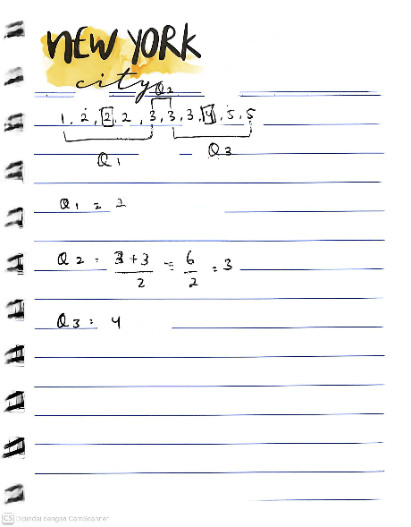 NEW YORK
city
Q2
1, 2, 2, 2, 3, 3, 3, 4, 5, 5
Q1 Q3
Q1 = 2
Q2 = 3 + 3 / 2 = 6 / 2 = 3
Q3 = 4
CS Dipindai dengan CamScanner